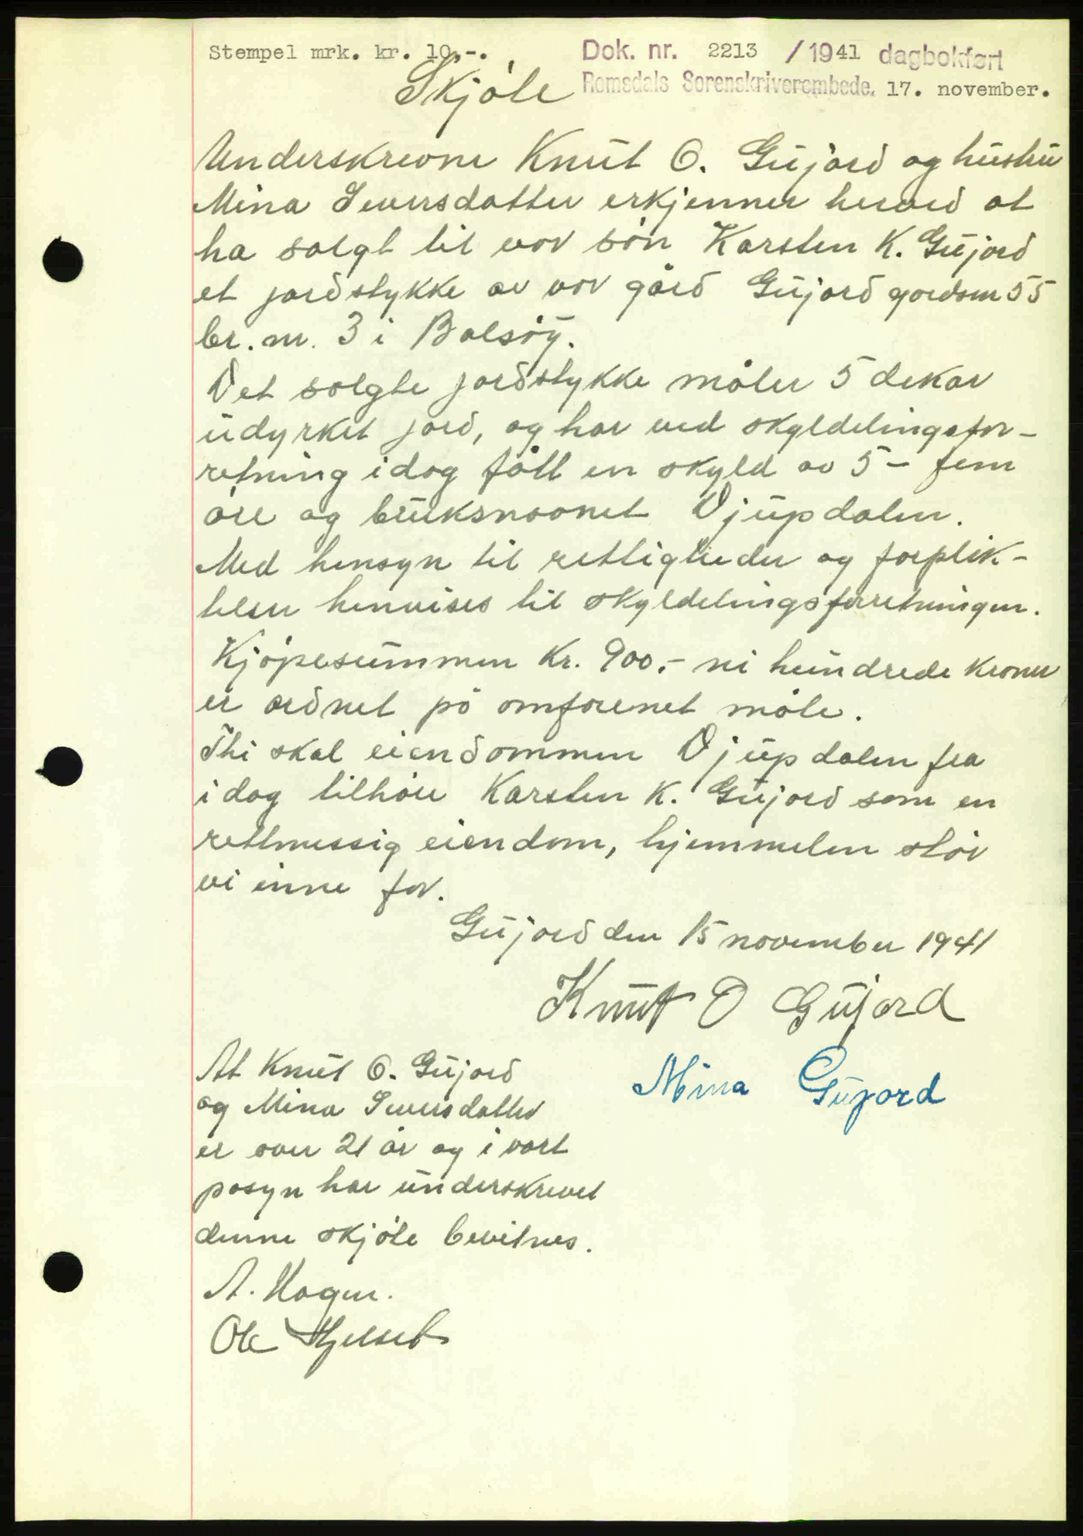 Stempel mrk. kr. 10.-. Dok. nr. 2213 / 1941 dagbokført
Skjøte Romsdals Sorenskriverembede. 17. november.
Underskrevne Knut O. Gujord og hustru
Mina Sivursdatter erkjenner herved at
ha solgt til vor søn Karsten K. Gujord
et jordstykke av vor gård Gujord gordsnr 55
br. nr. 3 i Bolsøy.
Det solgte jordstykke måler 5 dekar
udyrket jord, og har ved skyldelingsfor-
retning idag fått en skyld av 5 – fem
øre og bruksnavnet Djupdalen.
Med hensyn til rettigheder og forplik-
telser henvises til skyldelingsforretningen.
Kjøpesummen Kr. 900.- ni hundrede kroner
er ordnet på omforenet måte.
Thi skal eiendommen Djupdalen fra
idag tilhøre Karsten K. Gujord som en
rettmessig eiendom, hjemmelen står
vi inne for.
Gujord den 15 november 1941
Knut O Gujord
Mina Gujord
At Knut O. Gujord
og Mina Sivursdatter
er over 21 år og i vort
påsyn har underskrevet
denne skjøte bevitnes.
A. Hagen.
Ole Hjelset